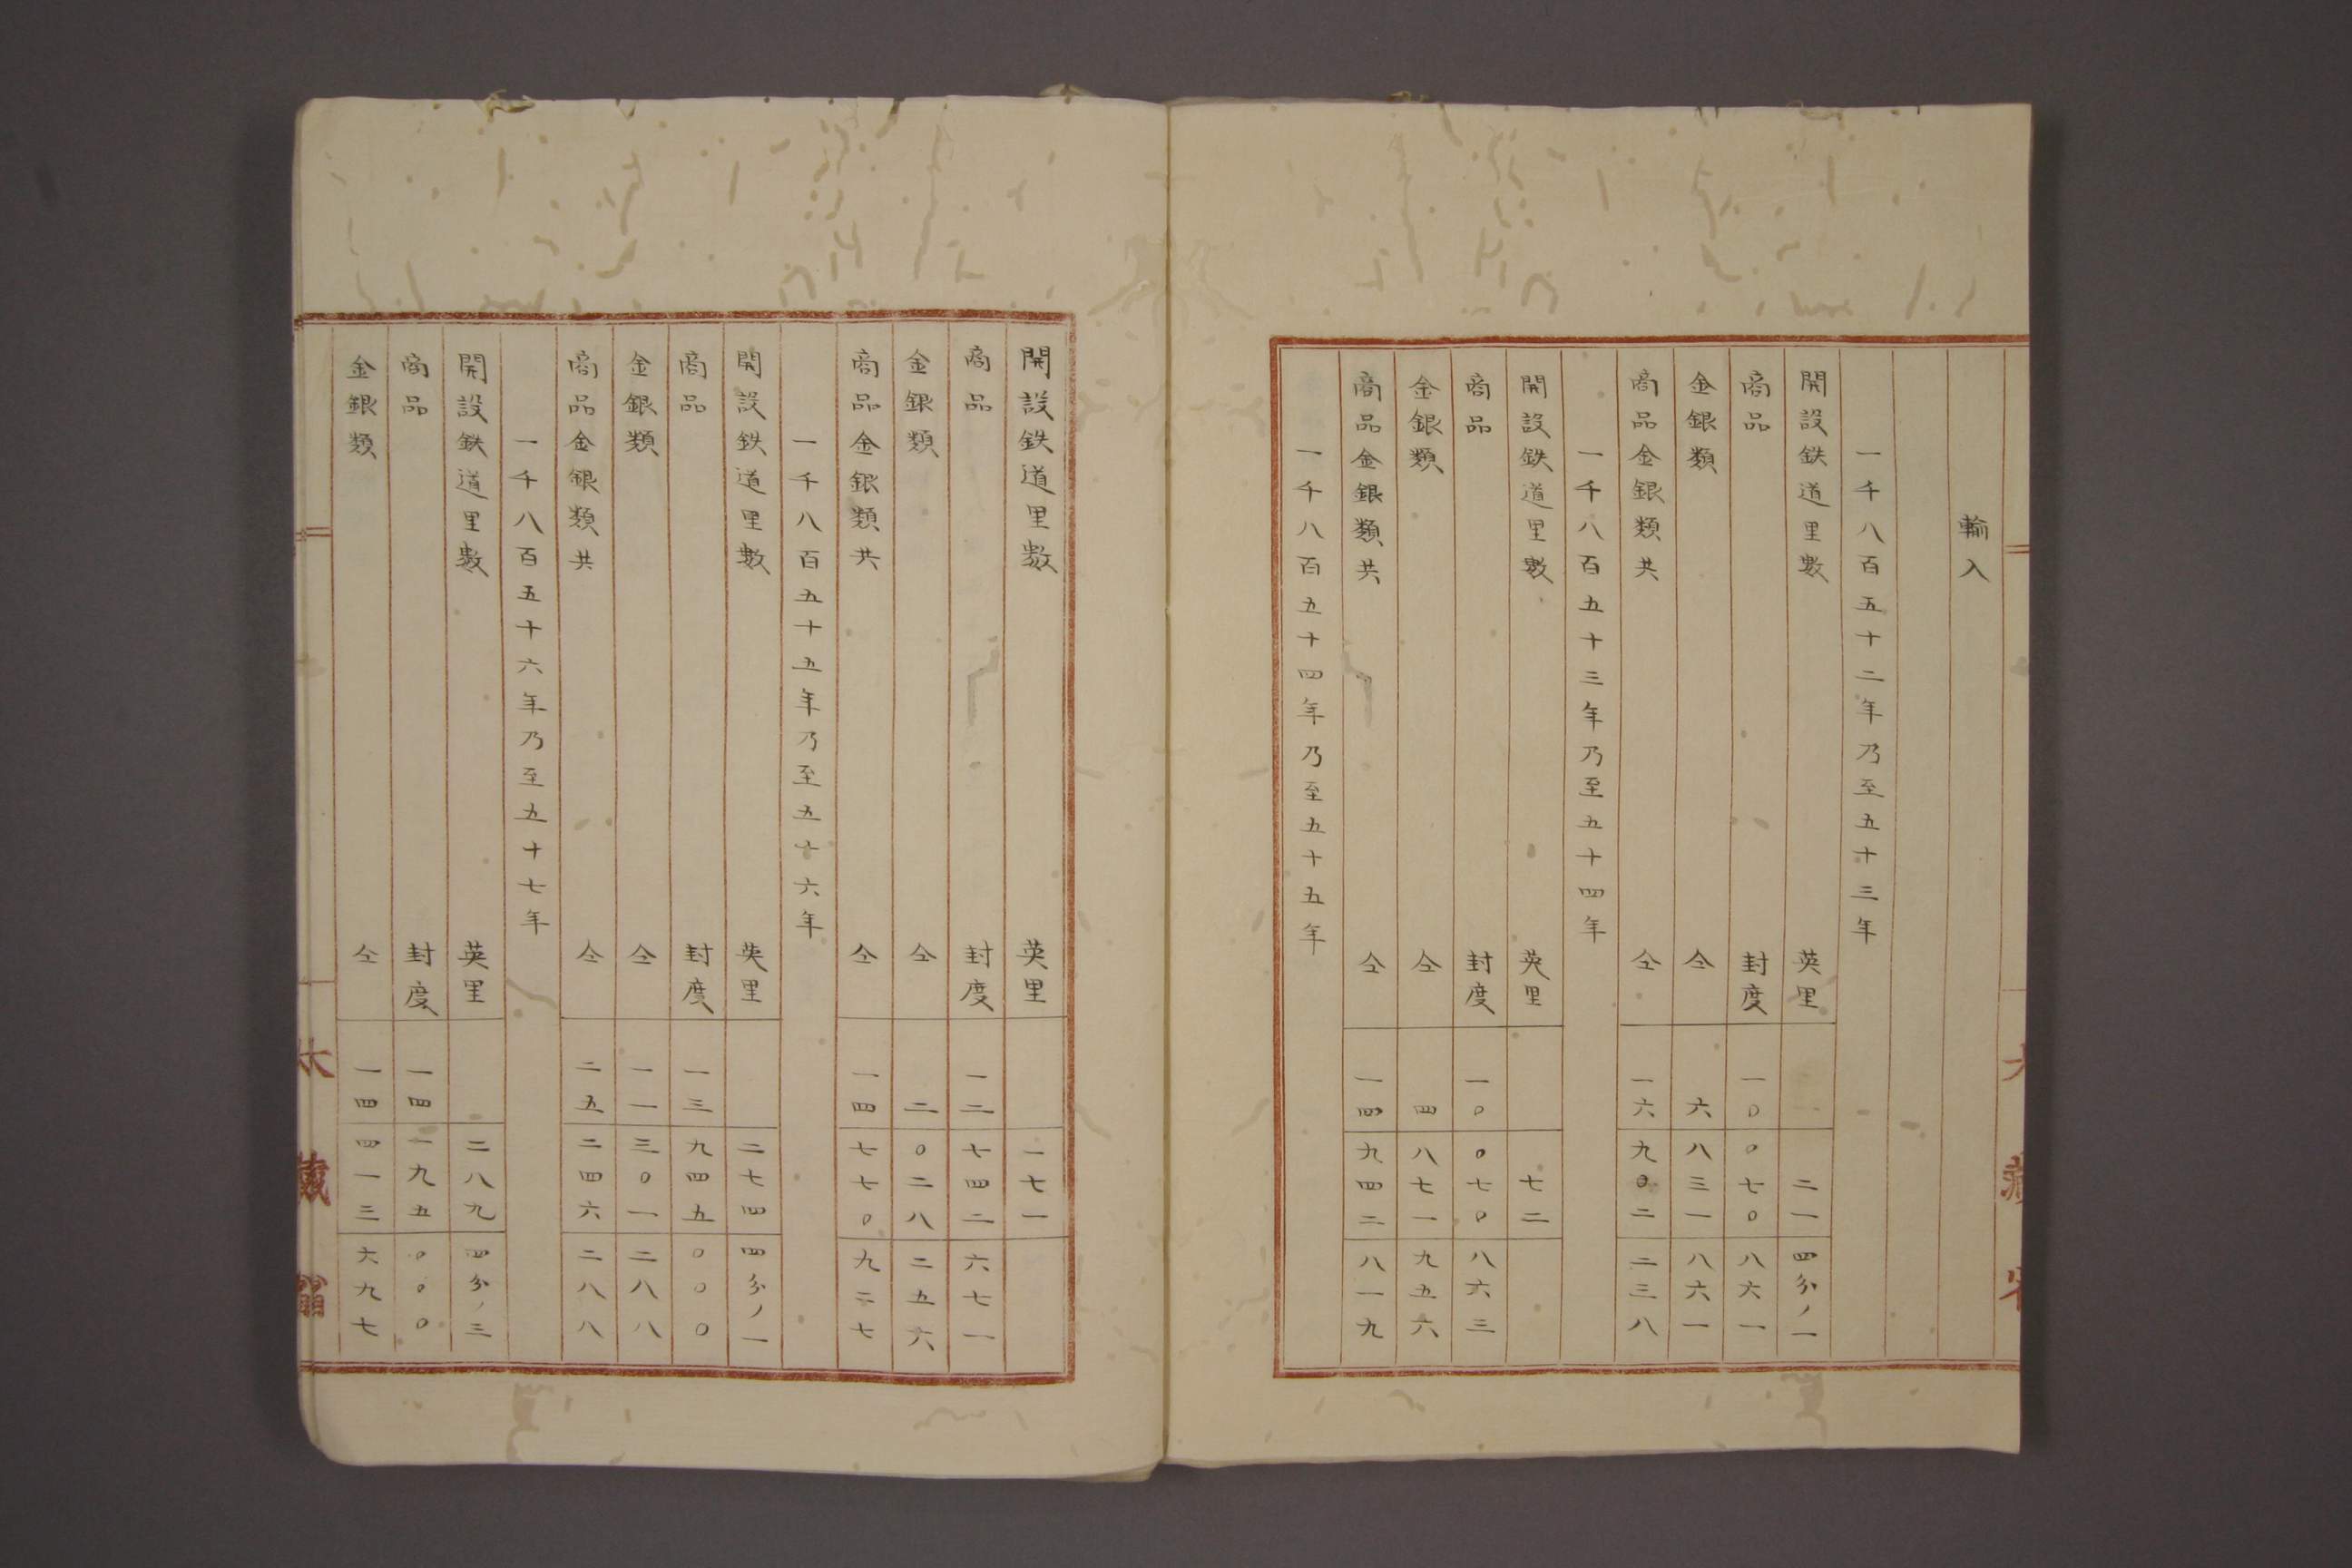 輸入
一千八百五十二年乃至五十三年
開設鉄道里數 英里 二一 四分ノ一
商品 封度 一〇 〇七〇 八六一
金銀類 仝 六 八三一 八六一
商品金銀類共 仝 一六 九〇二 二三八
一千八百五十三年乃至五十四年
開設鉄道里數 英里 七二
商品 封度 一〇 〇七〇 八六三
金銀類 仝 四 八七一 九五六
商品金銀類共 仝 一四 九四二 八一九
一千八百五十四年乃至五十五年
開設鉄道里数 英里 一七一
商品 封度 一二 七四二 六七一
金銀類 仝 二 〇二八 二五六
商品金銀類共 仝 一四 七七〇 九二七
一千八百五十五年乃至五十六年
開設鉄道里數 英里 二七四 四分ノ一
商品 封度 一三 九四五 〇〇〇
金銀類 仝 一一 三〇一 二八八
商品金銀類共 仝 二五 二四六 二八八
一千八百五十六年乃至五十七年
開設鉄道里數 英里 二八九 四分ノ三
商品 封度 一四 一九五 〇〇〇
金銀類 仝 一四 四一三 六九七